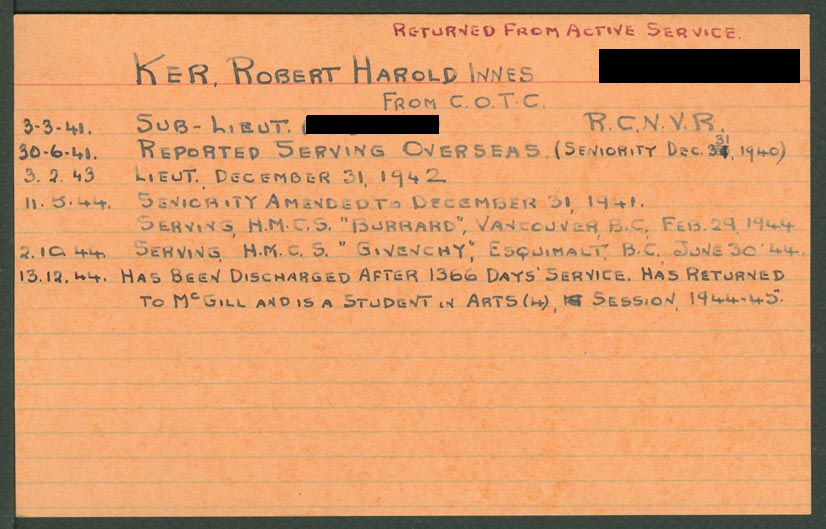 RETURNED FROM ACTIVE SERVICE.
KER, ROBERT HAROLD INNES
FROM C.O.T.C.
3-3-41. SUB-LIEUT. R.C.N.V.R.
30-6-41. REPORTED SERVING OVERSEAS. (SENIORITY DEC. 31, 1940)
3.2.43 LIEUT. DECEMBER 31, 1942
11.5.44. SENIORITY AMENDED TO DECEMBER 31, 1941.
SERVING, H.M.C.S. "BURRARD", VANCOUVER, B.C, FEB. 29, 1944
2.10.44. SERVING, H.M.C.S. "GIVENCHY", ESQUIMALT, B.C, JUNE 30 '44.
13.12.44. HAS BEEN DISCHARGED AFTER 1366 DAYS' SERVICE. HAS RETURNED
TO McGILL AND IS A STUDENT IN ARTS (4), SESSION, 1944-45.